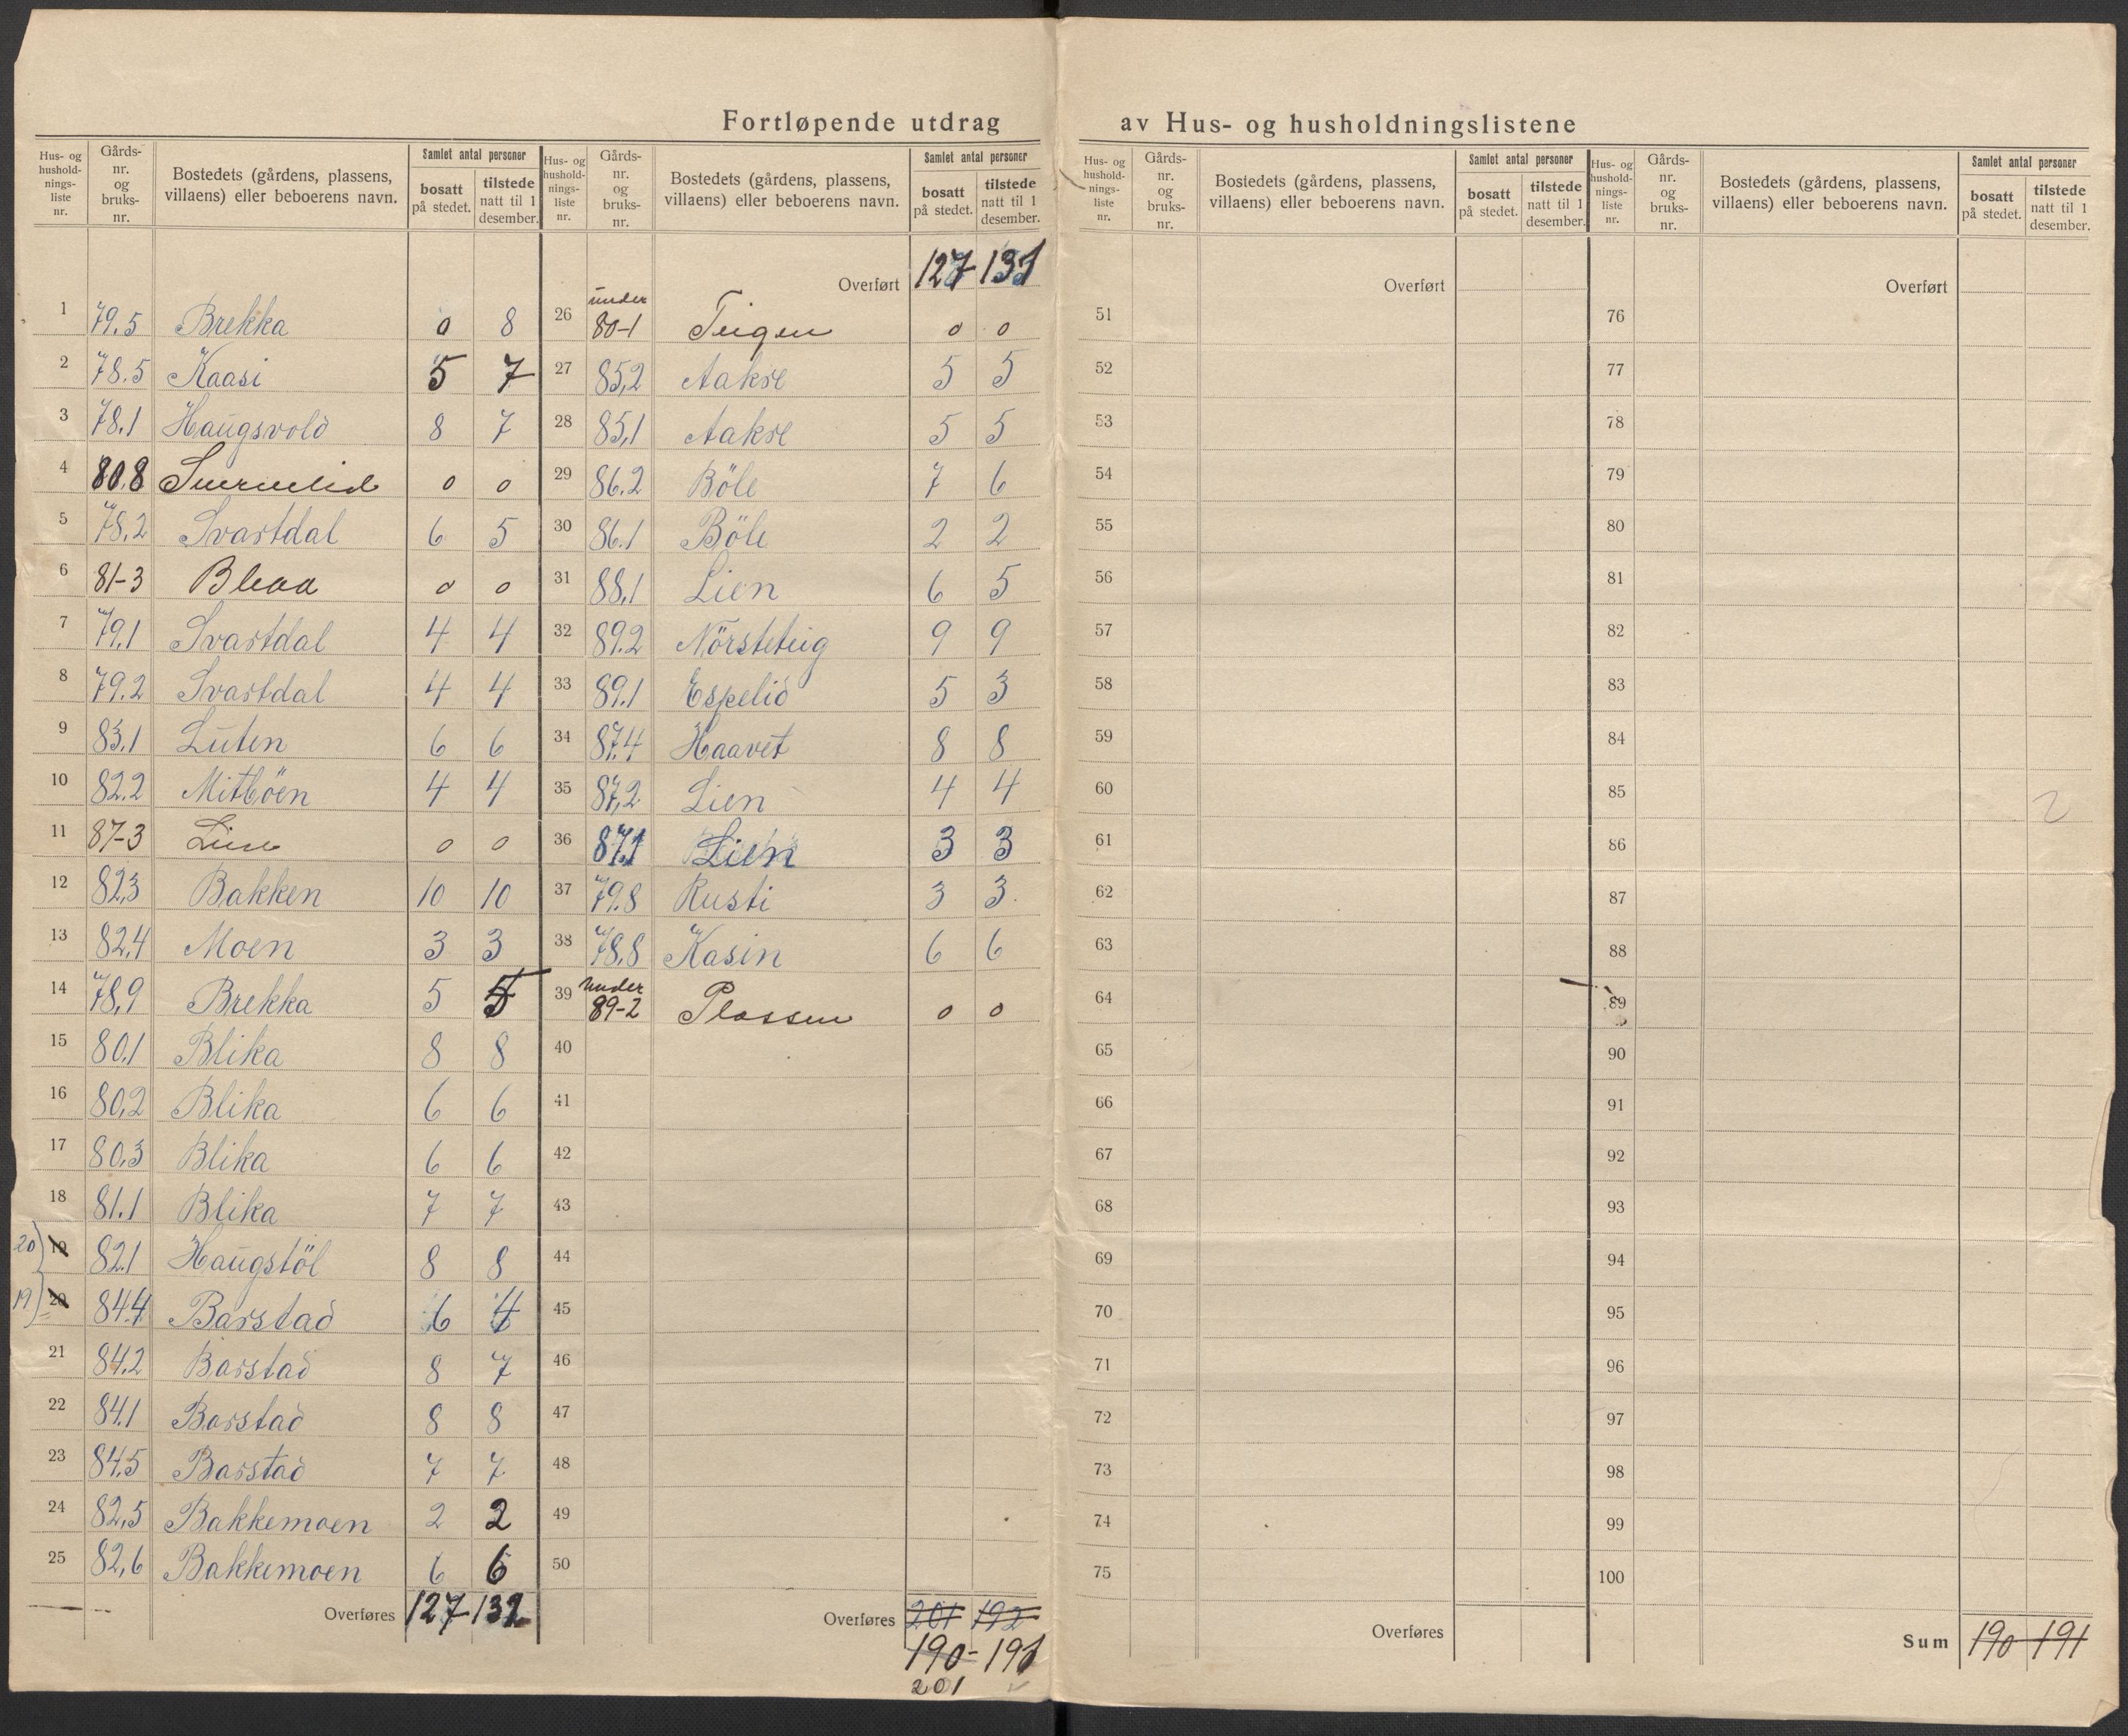 Fortløpende utdrag av Hus- og husholdningslistene
Hus- og hushold-nings-liste nr. Gårds-nr. og bruks-nr. Bostedets (gårdens, plassens, villaens) eller beboerens navn. Samlet antal personer bosatt på stedet. tilstede natt til 1 desember.
1 79.5 Brekka 0 8
2 78.5 Kaasi 5 7
3 78.1 Haugsvold 8 7
4 80.8 0 0
5 78.2 Svartdal 6 5
6 81-3 0 0
7 79.1 Svartdal 4 4
8 79.2 Svartdal 4 4
9 83.1 Luten 6 6
10 82.2 Mitböen 4 4
11 87-3 Lien 0 0
12 82.3 Bakken 10 10
13 82.4 Moen 3 3
14 78.9 Brekka 5 5
15 80.1 Blika 8 8
16 80.2 Blika 6 6
17 80.3 Blika 6 6
18 81.1 Blika 7 7
20) 19 82.1 Haugstöl 8 8
19) 20 84.4 Barstad 6 4
21 84.2 Barstad 8 7
22 84.1 Barstad 8 8
23 84.5 Barstad 7 7
24 82.5 Bakkemoen 2 2
25 82.6 Bakkemoen 6 6
Overføres 127 132
Hus- og hushold-nings-liste nr. Gårds-nr. og bruks-nr. Bostedets (gårdens, plassens, villaens) eller beboerens navn. Samlet antal personer bosatt på stedet. tilstede natt til 1 desember.
Overført 127 131
26 under 80-1 Teigen 0 0
27 85,2 Aakre 5 5
28 85,1 Aakre 5 5
29 86.2 Böle 7 6
30 86.1 Böle 2 2
31 88,1 Lien 6 5
32 89.2 Nörsteteig 9 9
33 89.1 Espelid 5 3
34 87.4 Haavet 8 8
35 87,2 Lien 4 4
36 87.1 Lien 3 3
37 79.8 Rusti 3 3
38 78.8 Kasin 6 6
39 under 89-2 Plassen 0 0
40
41
42
43
44
45
46
47
48
49
50
Overføres 201 192
190 - 191
201
Hus- og hushold-nings-liste nr. Gårds-nr. og bruks-nr. Bostedets (gårdens, plassens, villaens) eller beboerens navn. Samlet antal personer bosatt på stedet. tilstede natt til 1 desember.
Overført
51
52
53
54
55
56
57
58
59
60
61
62
63
64
65
66
67
68
69
70
71
72
73
74
75
Overføres
Hus- og hushold-nings-liste nr. Gårds-nr. og bruks-nr. Bostedets (gårdens, plassens, villaens) eller beboerens navn. Samlet antal personer bosatt på stedet. tilstede natt til 1 desember.
Overført
76
77
78
79
80
81
82
83
84
85 2
86
87
88
89
90
91
92
93
94
95
96
97
98
99
100
Sum 190 191